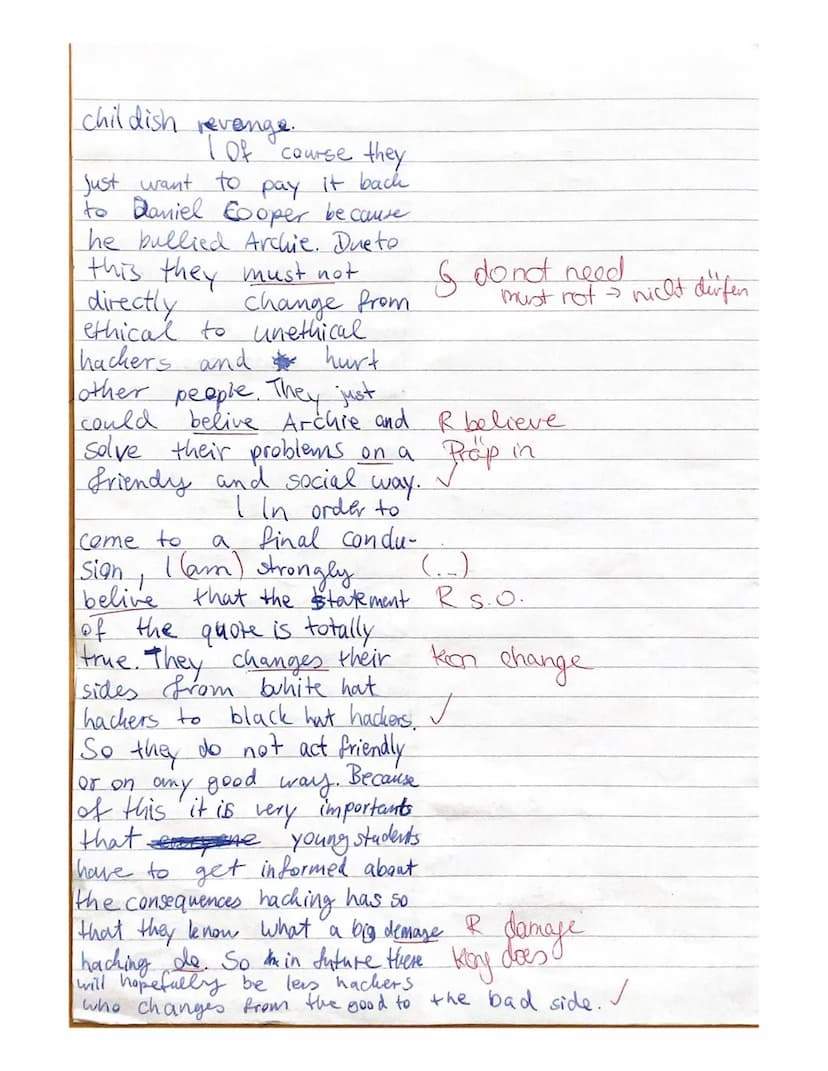 childish revenge.
| Of course they
just want to pay it back
to Daniel Cooper because
he bullied Archie. Due to
this they must not ↳ do not need
directly change from must not → nicht dürfen
ethical to unethical
hackers and hurt
other people. They just
could belive Archie and R believe
solve their problems on a Präp in
friendy and social way. ✓
| In order to
come to a final condu-
sion, I (am) strongly (...)
belive that the statement R s.O.
of the quote is totally
true. They changes their Kon change
sides from white hat
hackers to black hat hackers. ✓
So they do not act friendly
or on any good way. Because
of this it is very importants
that young students
have to get informed about
the consequences hacking has so
that they know what a big demage R damage
hacking do. So in future there Kong does
will hopefully be less hackers
who changes from the good to the bad side. ✓